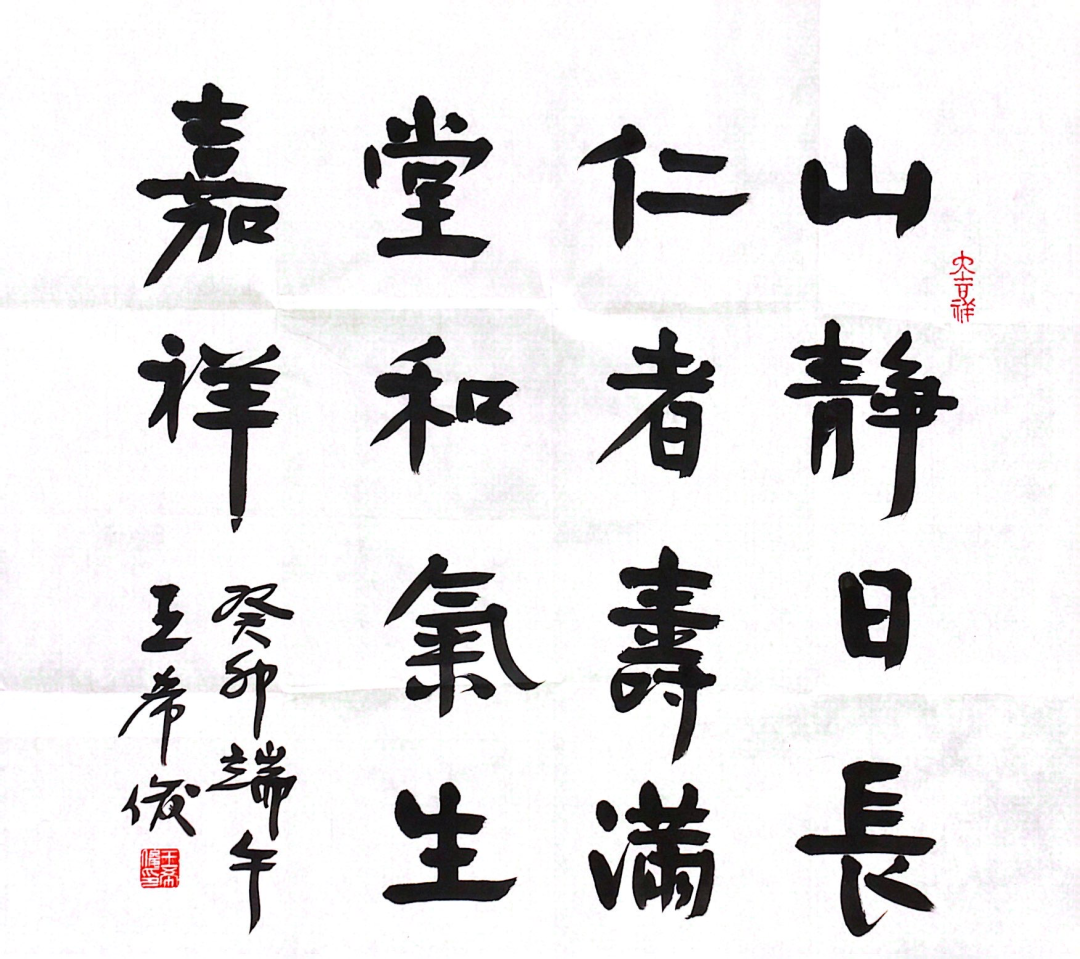 山靜日長
仁者壽滿
堂和氣生
嘉祥
癸卯端午
王希俊
大吉祥
王希俊印